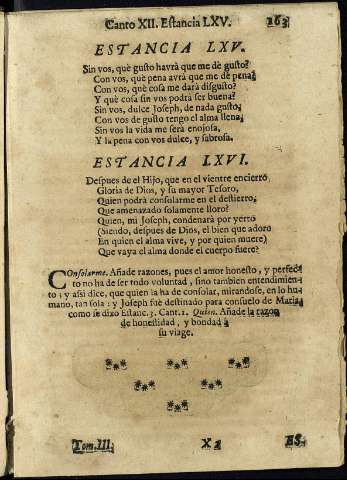 Canto XII. Estancia LXV. 163
ESTANCIA LXV.
Sin vos, què gusto havrà que me dè gusto?
Con vos, què pena avrà que me dè pena?
Con vos, què cosa me darà disgusto?
Y què cosa sin vos podrà ser buena?
Sin vos, dulce Joseph, de nada gusto,
Con vos de gusto tengo el alma llena,
Sin vos la vida me serà enojosa,
Y la pena con vos dulce, y sabrosa.
ESTANCIA LXVI.
Despues de el Hijo, que en el vientre encierro,
Gloria de Dios, y su mayor Tesoro,
Quien podrà consolarme en el destierro,
Que amenazado solamente lloro?
Quien, mi Joseph, condenarà por yerro
(Siendo, despues de Dios, el bien que adoro
En quien el alma vive, y por quien muere)
Que vaya el alma donde el cuerpo fuere?
Consolarme. Añade razones, pues el amor honesto, y perfec-
to no ha de ser todo voluntad, sino tambien entendimien-
to; y assi dice, que quien la ha de consolar, mirandose, en lo hu-
mano, tan sola; y Joseph fuè destinado para consuelo de Maria,
como se dixo Estanc. 3. Cant. 11. Quien. Añade la razon
de honestidad, y bondad à
su viage.
Tom. III. X 2 ES-